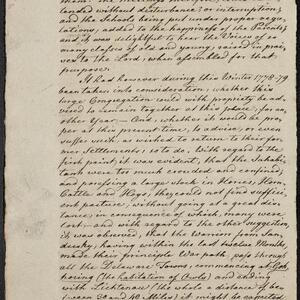 them. The Meetings
tended without disturbance or interruption;
and the Schools being put under proper regu-
lations, added to the happiness of the Parents;
and it was delightful to hear the Voices of so
many classes of old and young, raised in prai-
ses to the Lord, when assembled for that
purpose.
It had however during this Winter 1778-79
been taken into consideration, whether this
large Congregation could with propriety be ad-
vised to remain together at this place, for an-
other Year — And, whether it would be pro-
per at this present time, to advise, or even
suffer such, as wished to return to their for-
mer Settlements, to do so. With regard to the
first point; it was evident, that the Inhabi-
tants were too much crowded and confined;
and possessing a large stock in Horses, Horn-
Cattle and Hogs, they could not find suffici-
ent pasture, without going at a great dis-
tance, in consequence of which, many were
lost — and with regard to the other suggestion,
it was observed, that the Warriors from San-
dusky, having within the last twelve Months,
made their principle War path, pass through
all the Delaware Towns, commencing at
hocking (the habitation of Owls) and ending
with Lichtenau (the whole a distance of be-
tween 30 and 40 Miles) it might be expected